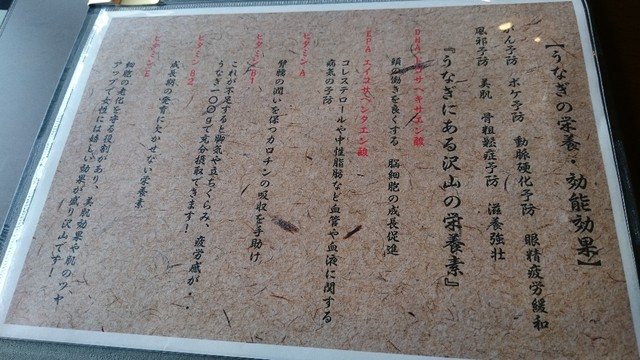 【うなぎの栄養・効能効果】
がん予防 ボケ予防 動脈硬化予防 眼精疲労緩和
風邪予防 美肌 骨粗鬆症予防 滋養強壮
『うなぎにある沢山の栄養素』
DHA ドコサヘキサエン酸
頭の働きを良くする 脳細胞の成長促進
EPA エイコサペンタエン酸
コレステロールや中性脂肪など血管や血液に関する
病気の予防
ビタミンA
腎臓の潤いを保つカロチンの吸収を手助け
ビタミンB1
これが不足すると脚気や立ちくらみ、疲労感が・・
うなぎ一〇〇gで充分摂取できます!
ビタミンB2
成長期の発育に欠かせない栄養素
ビタミンE
細胞の老化を守る役割があり、美肌効果や肌のツヤ
アップで女性には嬉しい効果が盛り沢山です!